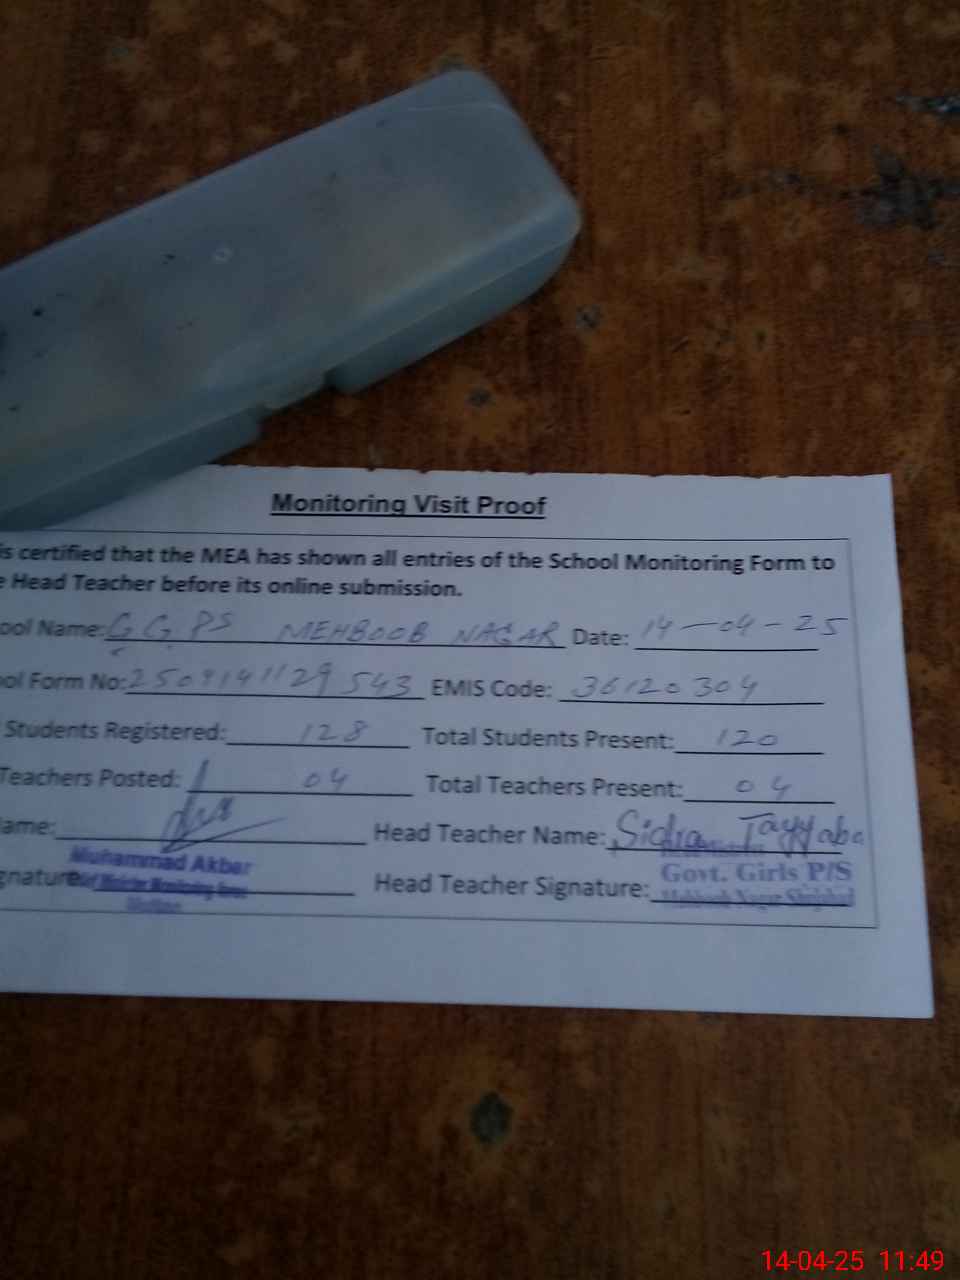 Monitoring Visit Proof
is certified that the MEA has shown all entries of the School Monitoring Form to
e Head Teacher before its online submission.
ool Name: G G PS MEHBOOB NAGAR Date: 14-04-25
ol Form No: 2509141129543 EMIS Code: 36120304
Students Registered: 128 Total Students Present: 120
Teachers Posted: 04 Total Teachers Present: 04
ame: Head Teacher Name: Sidra Tayyaba
Muhammad Akbar
gnature Head Teacher Signature: Govt. Girls P/S
14-04-25 11:49